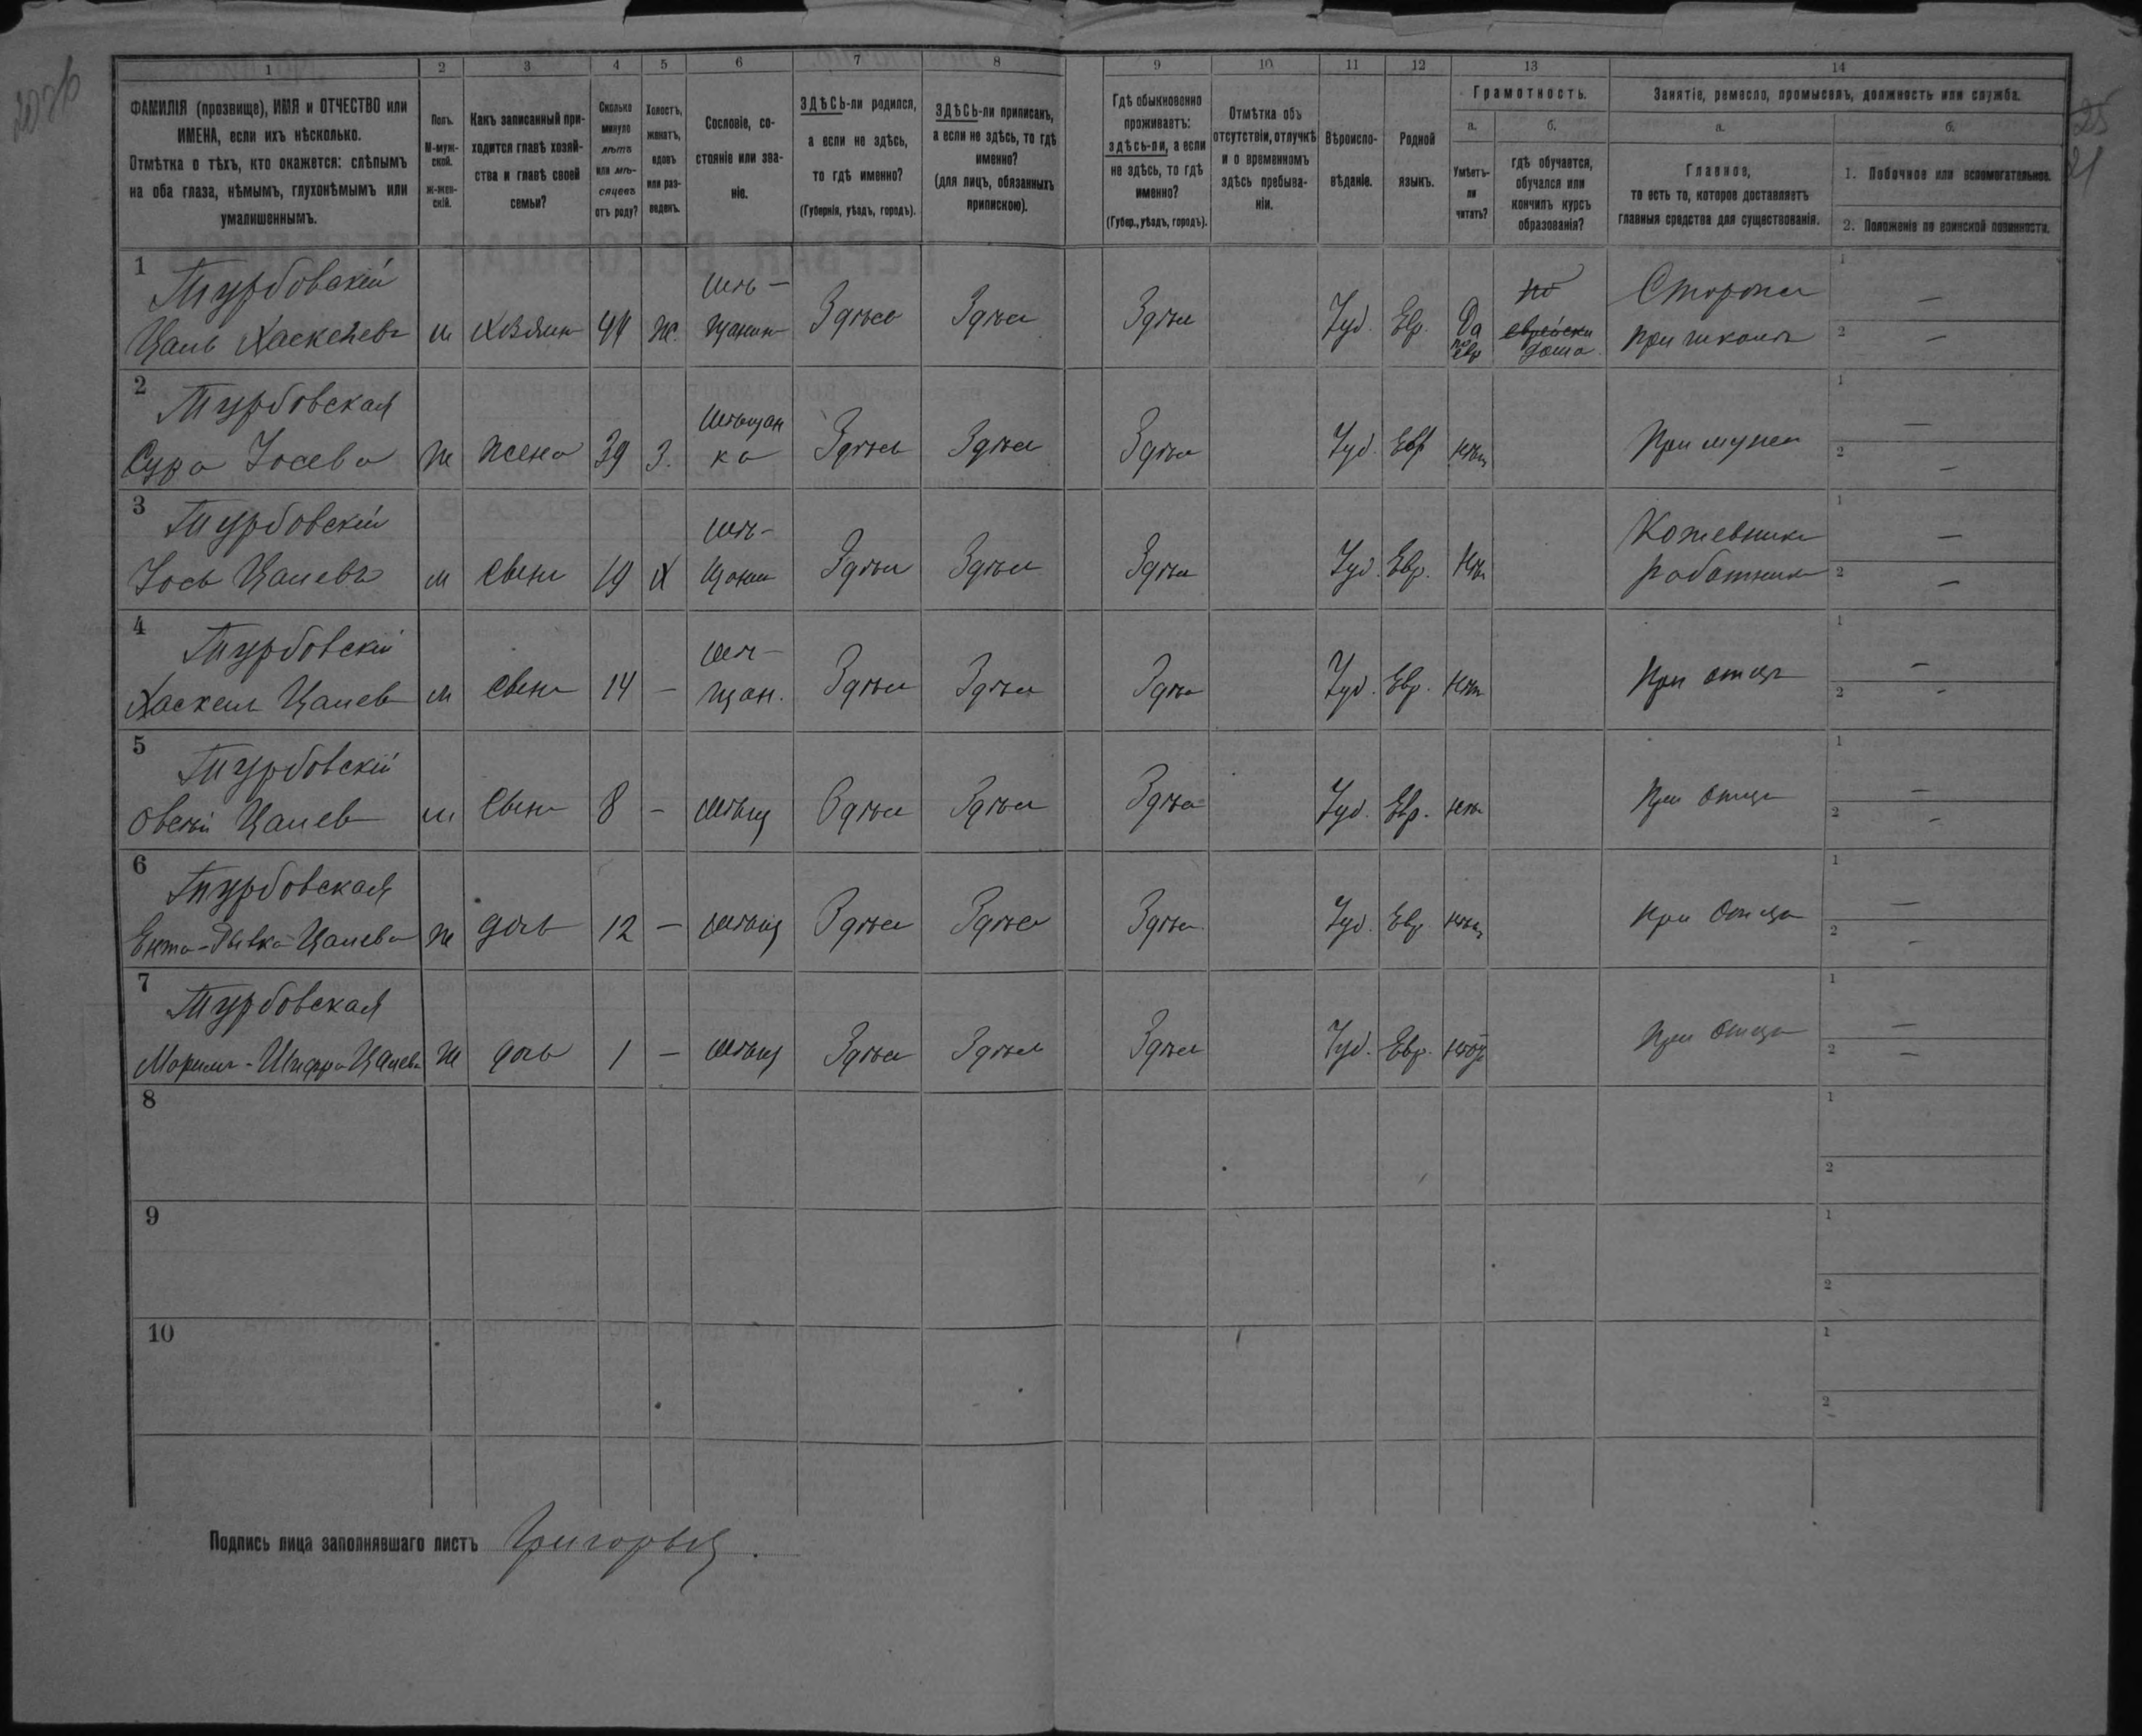 1 2 3 4 5 6 7 8 9 10 11 12 13 14
ФАМИЛІЯ (прозвище), ИМЯ и ОТЧЕСТВО или
ИМЕНА, если ихъ нѣсколько.
Отмѣтка о тѣхъ, кто окажется: слѣпымъ
на оба глаза, нѣмымъ, глухонѣмымъ или
умалишеннымъ.
Полъ.
М-муж-
ской.
ж-жен-
скій.
Какъ записанный при-
ходится главѣ хозяй-
ства и главѣ своей
семьи?
Сколько
минуло
лѣтъ
или мѣ-
сяцевъ
отъ роду?
Холостъ,
женатъ,
вдовъ
или раз-
веденъ.
Сословіе, со-
стояніе или зва-
ніе.
ЗДѢСЬ-ли родился,
а если не здѣсь,
то гдѣ именно?
(Губернія, уѣздъ, городъ).
ЗДѢСЬ-ли приписанъ,
а если не здѣсь, то гдѣ
именно?
(для лицъ, обязанныхъ
припискою).
Гдѣ обыкновенно
проживаетъ:
здѣсь-ли, а если
не здѣсь, то гдѣ
именно?
(Губер., уѣздъ, городъ).
Отмѣтка объ
отсутствіи, отлучкѣ
и о временномъ
здѣсь пребыва-
ніи.
Вѣроиспо-
вѣданіе.
Родной
языкъ.
Грамотность.
а.
Умѣетъ-
ли
читать?
б.
гдѣ обучается,
обучался или
кончилъ курсъ
образованія?
Занятіе, ремесло, промыселъ, должность или служба.
а.
Главное,
то есть то, которое доставляетъ
главныя средства для существованія.
б.
1. Побочное или вспомогательное.
2. Положеніе по воинской повинности.
25
21
1
Турбовскій мѣ- по Сторожъ 1 —
Цаль Хаскелевъ м хозяинъ 44 ж. щанинъ Здѣсь Здѣсь Здѣсь Іуд. Евр. Да еврейски при школѣ 2 —
по евр дома
2
Турбовская мѣщан 1 —
Сура Іосева ж жена 39 З. ка Здѣсь Здѣсь Здѣсь Іуд. Евр нѣтъ При мужѣ 2 —
3
Турбовскій мѣ- Кожевникъ 1 —
Іось Цалевъ м сынъ 19 Х щанин Здѣсь Здѣсь Здѣсь Іуд. Евр. Нѣтъ работникъ 2 —
4
Турбовскій мѣ- 1 —
Хаскель Цалев м сынъ 14 — щан. Здѣсь Здѣсь Здѣсь Іуд. Евр. нѣтъ При отцѣ 2 -
5
Турбовскій 1 —
Овсѣй Цалев м сынъ 8 — мѣщ Здѣсь Здѣсь Здѣсь Іуд. Евр. нѣтъ При отцѣ 2 -
6
Турбовская 1 —
Ента-Рывка Цалева ж дочь 12 — мѣщ Здѣсь Здѣсь Здѣсь Іуд. Евр. нѣтъ При отцѣ 2 -
7
Турбовская 1 —
Маримъ-Шифра Цалева ж дочь 1 — мѣщ Здѣсь Здѣсь Здѣсь Іуд. Евр. нѣтъ При отцѣ 2 —
8 1
2
9 1
2
10 1
2
Подпись лица заполнявшаго листъ